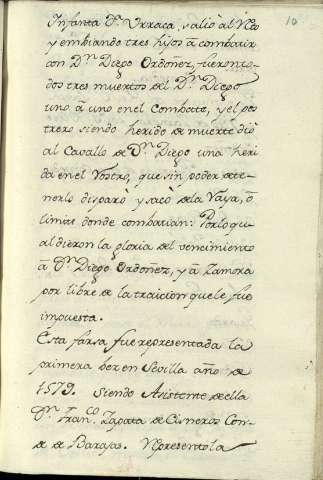 10
Infanta Dª. Urraca, salió al Reto
y embiando tres hijos à combatir
con Dn. Diego Ordoñez, fueron to-
dos tres muertos del Dn. Diego
uno à uno en el Combate, y el pos
trero siendo herido de muerte diò
al Cavallo de Dn. Diego una heri
da en el Rostro, que sin poder dete-
nerlo disparò y sacò de la Raya, ò
limites donde combatian: Porloqu-
al dieron la gloria del vencimiento
à Dn. Diego Ordoñez, y à Zamora
por libre de la traicion que le fue
impuesta.
Esta farsa fue representada la
primera vez en Sevilla año de
1579. Siendo Asistente de ella
Dn. Franco. Zapata de Cisneros Con-
de de Barajas. Representola